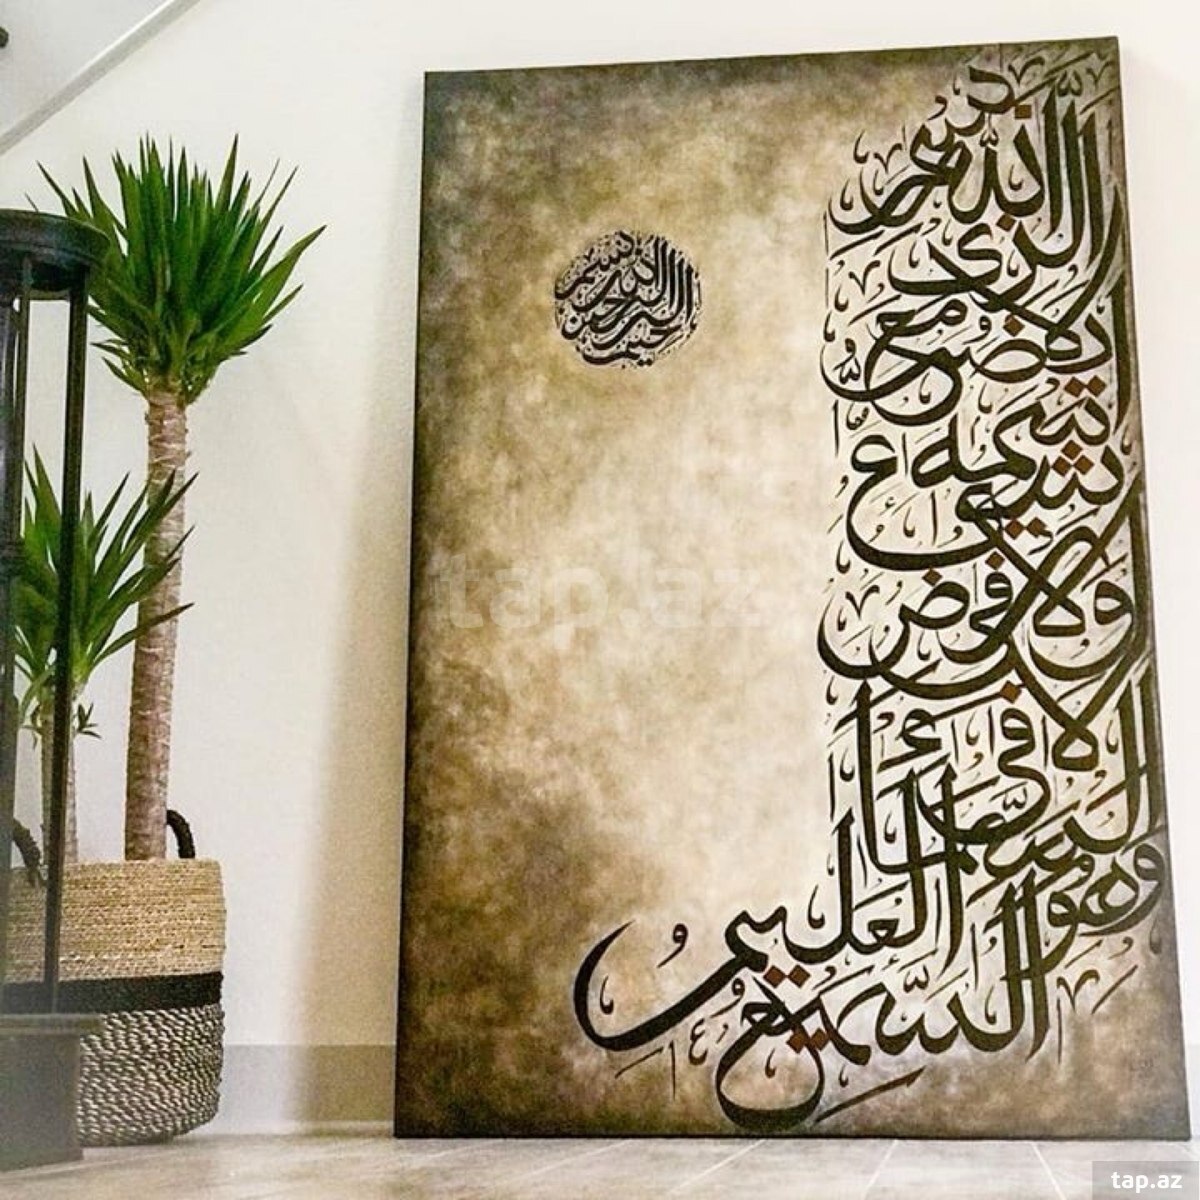 بسم الله الرحمن الرحيم
الله الذي لا يضر مع
اسمه شيء
في الأرض
ولا في السماء
وهو السميع العليم
tap.az
tap.az